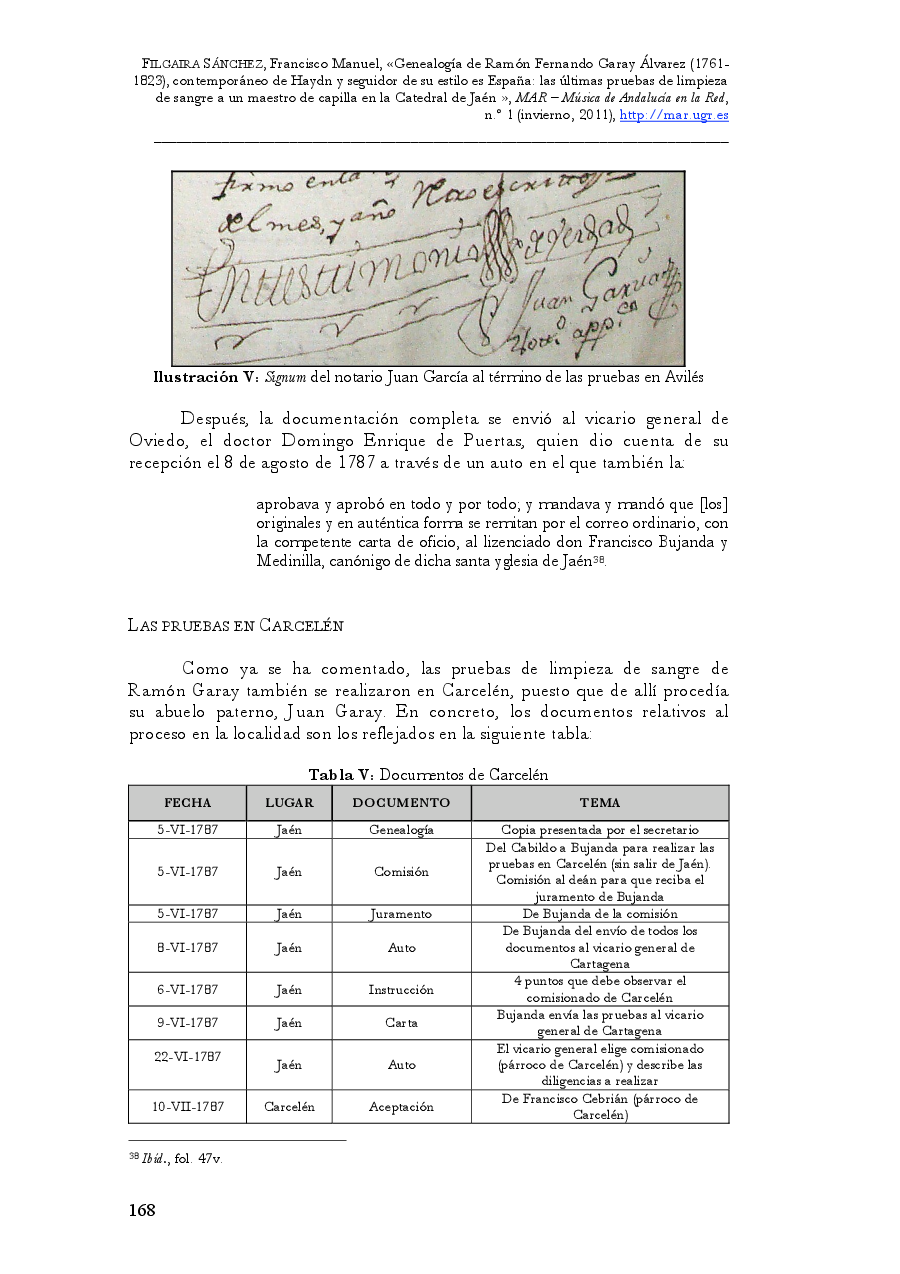 FILGAIRA SÁNCHEZ, Francisco Manuel, «Genealogía de Ramón Fernando Garay Álvarez (1761-
1823), contemporáneo de Haydn y seguidor de su estilo es España: las últimas pruebas de limpieza
de sangre a un maestro de capilla en la Catedral de Jaén », MAR – Música de Andalucía en la Red,
n.º 1 (invierno, 2011), http://mar.ugr.es
firmo en
del mes, y año
En testimonio de verdad
Juan García
Notº appco
Ilustración V: Signum del notario Juan García al término de las pruebas en Avilés
Después, la documentación completa se envió al vicario general de
Oviedo, el doctor Domingo Enrique de Puertas, quien dio cuenta de su
recepción el 8 de agosto de 1787 a través de un auto en el que también la:
aprobava y aprobó en todo y por todo; y mandava y mandó que [los]
originales y en auténtica forma se remitan por el correo ordinario, con
la competente carta de oficio, al lizenciado don Francisco Bujanda y
Medinilla, canónigo de dicha santa yglesia de Jaén38.
LAS PRUEBAS EN CARCELÉN
Como ya se ha comentado, las pruebas de limpieza de sangre de
Ramón Garay también se realizaron en Carcelén, puesto que de allí procedía
su abuelo paterno, Juan Garay. En concreto, los documentos relativos al
proceso en la localidad son los reflejados en la siguiente tabla:
Tabla V: Documentos de Carcelén
FECHA LUGAR DOCUMENTO TEMA
5-VI-1787 Jaén Genealogía Copia presentada por el secretario
Del Cabildo a Bujanda para realizar las
pruebas en Carcelén (sin salir de Jaén).
5-VI-1787 Jaén Comisión
Comisión al deán para que reciba el
juramento de Bujanda
5-VI-1787 Jaén Juramento De Bujanda de la comisión
De Bujanda del envío de todos los
8-VI-1787 Jaén Auto documentos al vicario general de
Cartagena
6-VI-1787 Jaén Instrucción 4 puntos que debe observar el
comisionado de Carcelén
9-VI-1787 Jaén Carta Bujanda envía las pruebas al vicario
general de Cartagena
22-VI-1787 El vicario general elige comisionado
Jaén Auto (párroco de Carcelén) y describe las
diligencias a realizar
10-VII-1787 Carcelén Aceptación De Francisco Cebrián (párroco de
Carcelén)
38 Ibíd., fol. 47v.
168